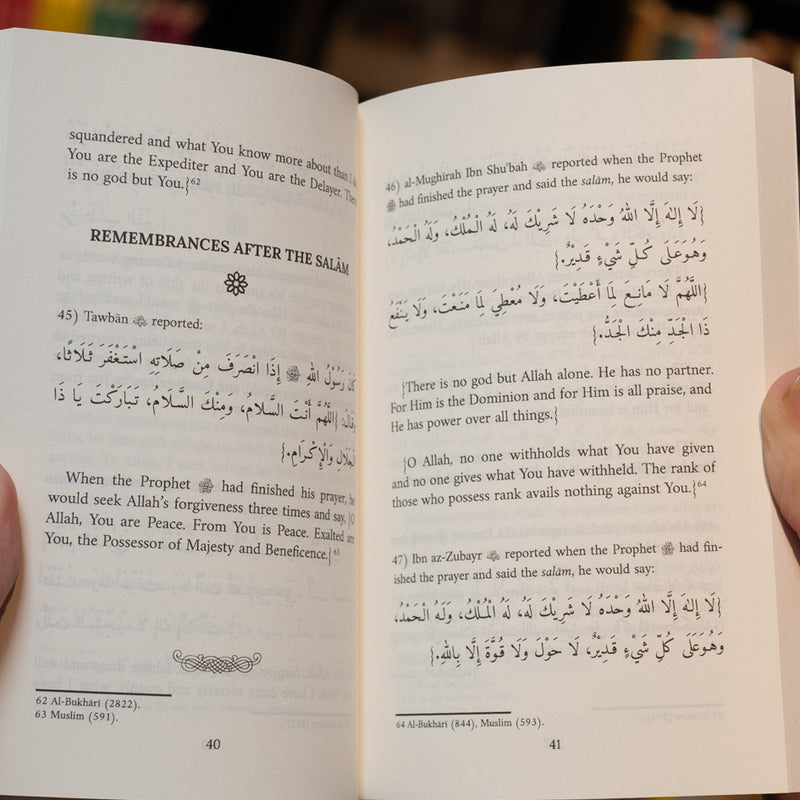 squandered and what You know more about than I do.
You are the Expediter and You are the Delayer. There
is no god but You.}62
REMEMBRANCES AFTER THE SALĀM
45) Tawbān ﷺ reported:
كَانَ رَسُوْلُ اللهِ ﷺ إِذَا انْصَرَفَ مِنْ صَلَاتِهِ اسْتَغْفَرَ ثَلَاثًا،
وَقَالَ: {اللَّهُمَّ أَنْتَ السَّلَامُ، وَمِنْكَ السَّلَامُ، تَبَارَكْتَ يَا ذَا
الْجَلَالِ وَالْإِكْرَامِ.}
When the Prophet ﷺ had finished his prayer, he
would seek Allah's forgiveness three times and say, {O
Allah, You are Peace. From You is Peace. Exalted are
You, the Possessor of Majesty and Beneficence.}63
62 Al-Bukhārī (2822).
63 Muslim (591).
40
46) al-Mughirah Ibn Shu'bah reported when the Prophet
ﷺ had finished the prayer and said the salām, he would say:
{لَا إِلٰهَ إِلَّا اللهُ وَحْدَهُ لَا شَرِيْكَ لَهُ، لَهُ الْمُلْكُ، وَلَهُ الْحَمْدُ،
وَهُوَعَلَى كُلِّ شَيْءٍ قَدِيْرٌ.}
{اللَّهُمَّ لَا مَانِعَ لِمَا أَعْطَيْتَ، وَلَا مُعْطِيَ لِمَا مَنَعْتَ، وَلَا يَنْفَعُ
ذَا الْجَدِّ مِنْكَ الْجَدُّ.}
{There is no god but Allah alone. He has no partner.
For Him is the Dominion and for Him is all praise, and
He has power over all things.{
{O Allah, no one withholds what You have given
and no one gives what You have withheld. The rank of
those who possess rank avails nothing against You.}64
47) Ibn az-Zubayr reported when the Prophet ﷺ had fin-
ished the prayer and said the salām, he would say:
{لَا إِلٰهَ إِلَّا اللهُ وَحْدَهُ لَا شَرِيْكَ لَهُ، لَهُ الْمُلْكُ، وَلَهُ الْحَمْدُ،
وَهُوَعَلَى كُلِّ شَيْءٍ قَدِيْرٌ، لَا حَوْلَ وَلَا قُوَّةَ إِلَّا بِاللهِ.}
64 Al-Bukhārī (844), Muslim (593).
41